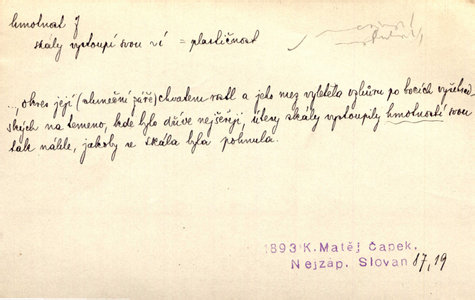 hmotnost f
skály vystoupí svou ví = plastičnost
.., okres její (sluneční záře) chvatem rostl a jeho mez vyletěla vzhůru po bocích
na temeno, kde bylo dříve nejšeřeji, útesy skály vystoupily hmotností svou
tak náhle, jakoby se skála byla pohnula.
1893 K. Matěj Čapek.
Nejzáp. Slovan 87,19